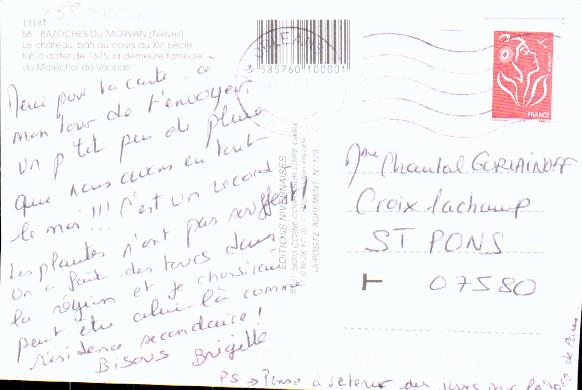 13181
58 - BAZOCHES-DU-MORVAN (Nièvre)
Le château, bâti au cours du XIIe siècle
fut, à dater de 1675, la demeure familiale
du Maréchal de Vauban
Merci pour la carte à
mon tour de t'envoyer
un p'tit peu de pluie
que nous avons eu tout
le moi !!! C'est un record
Les plantes n'ont pas souffert
On a fait des tours dans
la région et je choisirai
peut être celui là comme
résidence secondaire !
Bisous Brigitte
PS → Pense à retenir des jours pour
3 585760 100001
ORLEANS
EDITIONS NIVERNAISES
LA POSTE AGREMENT N° 129
FRANCE
Mme Chantal
Croix lachamp
ST PONS
07580